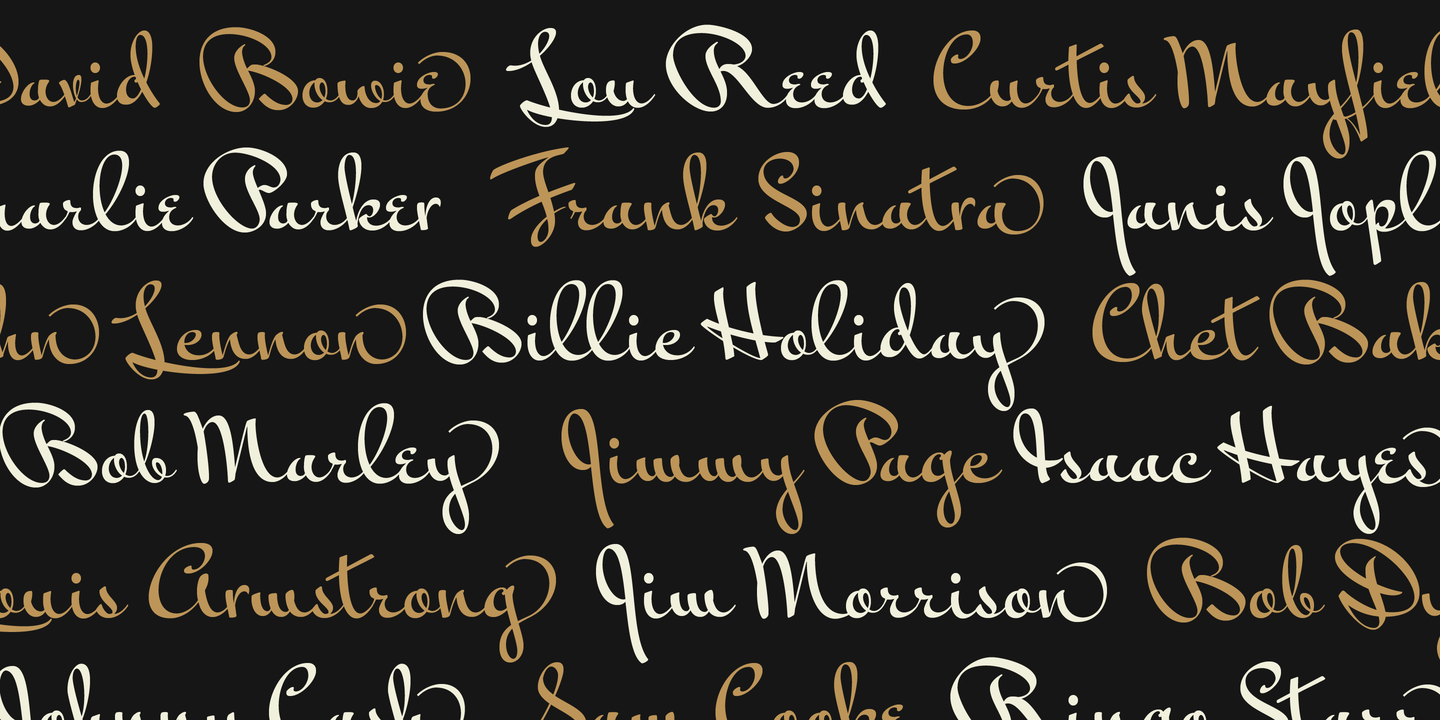 David Bowie Lou Reed Curtis Mayfiel
harlie Parker Frank Sinatra Janis Jopl
hn Lennon Billie Holiday Chet Bak
Bob Marley Jimmy Page Isaac Hayes
ouis Armstrong Jim Morrison Bob Dy
Johnny Cash Sam Cooke Ringo Starr